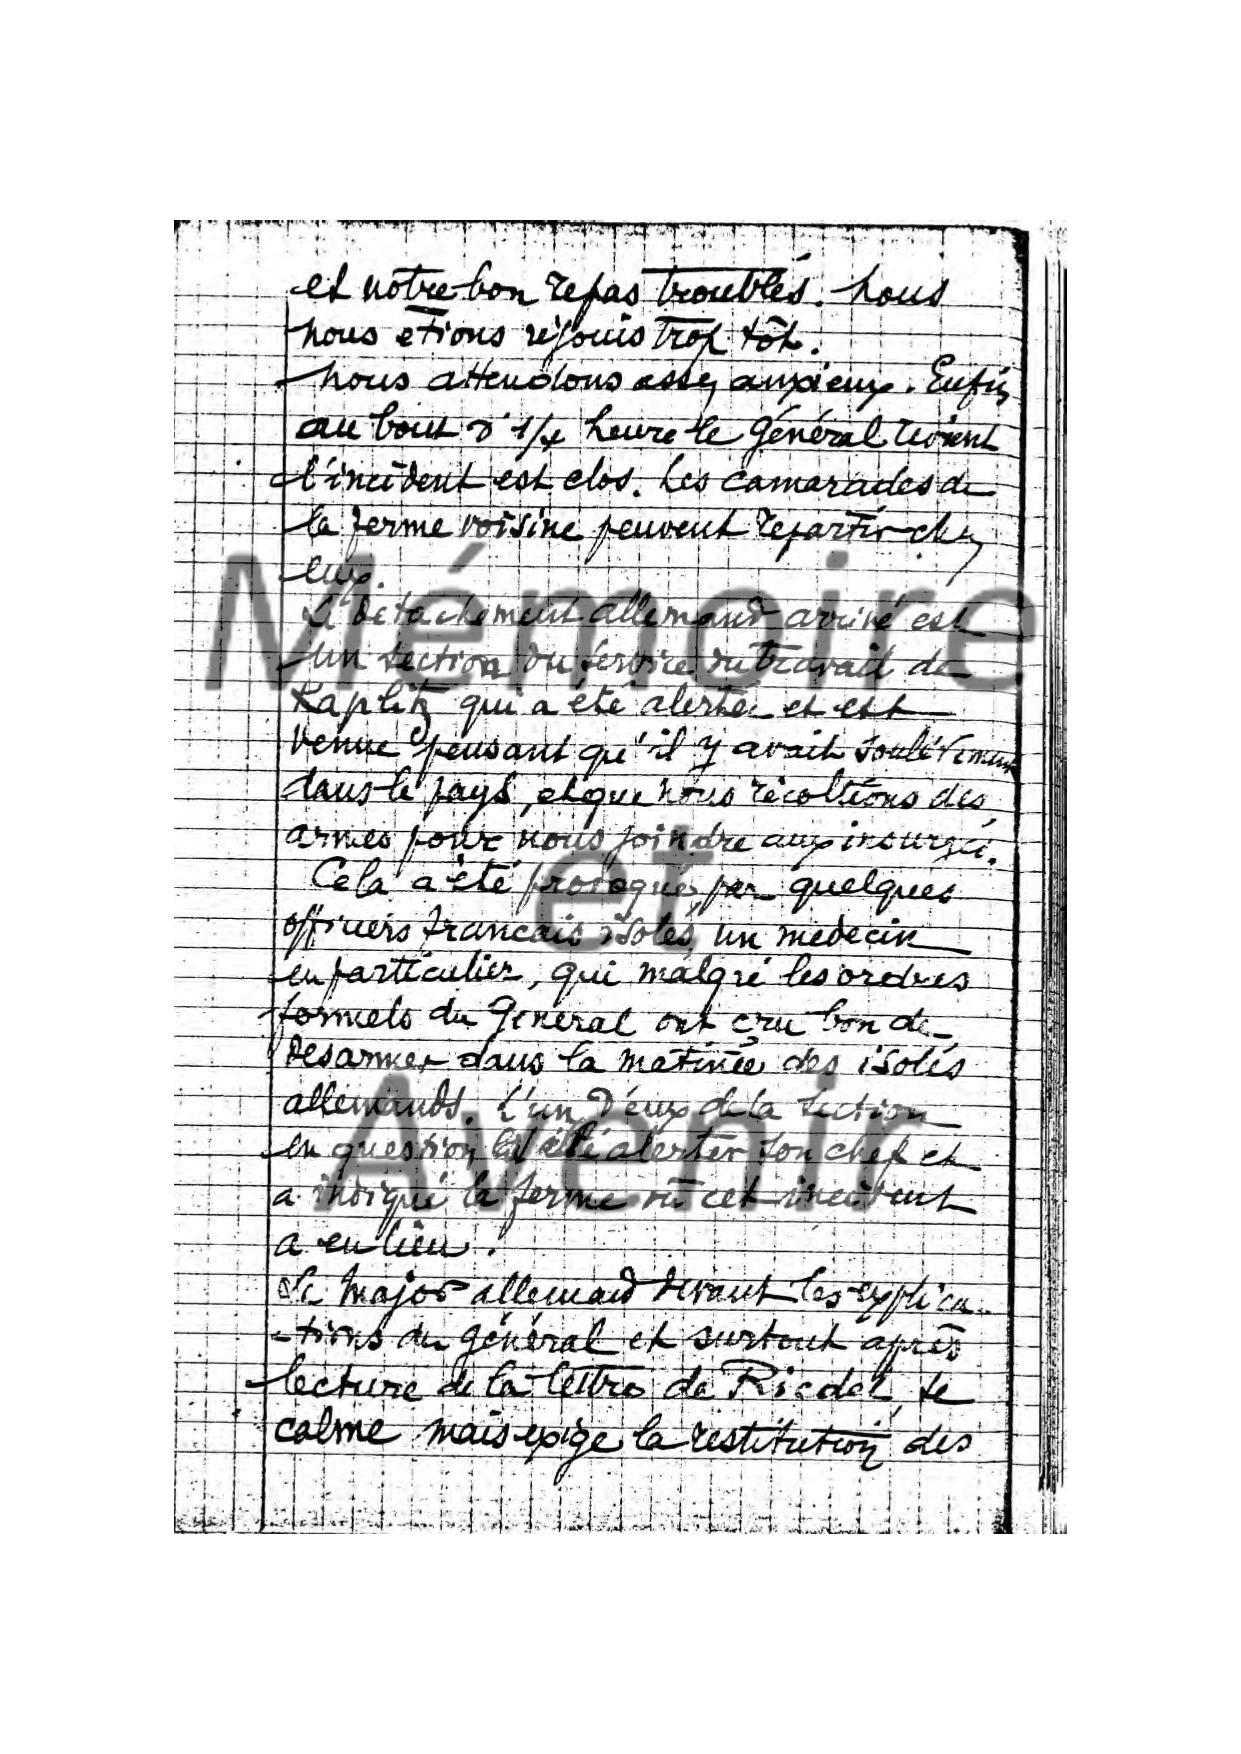 et notre bon repas troublés. Nous
nous étions réjouis trop tôt.
Nous attendons assez anxieux. Enfin
au bout d'1/4 heure le Général revient
l'incident est clos. Les camarades de
la ferme voisine peuvent repartir chez
eux.
Le détachement allemand arrivé est
un section du service du travail de
Kaplitz qui a été alertée et est
venue pensant qu'il y avait soulèvement
dans le pays, et que nous récoltions des
armes pour nous joindre aux insurgés.
Cela a été provoqué par quelques
officiers français isolés, un médecin
en particulier, qui malgré les ordres
formels du Général ont cru bon de
désarmer dans la matinée des isolés
allemands. L'un d'eux de la section
en question a été alerter son chef et
a indiqué la ferme où cet incident
a eu lieu.
Le Major allemand devant les explica-
-tions du général et surtout après
lecture de la lettre de Riedel, se
calme mais exige la restitution des
Mémoire
et
Avenir